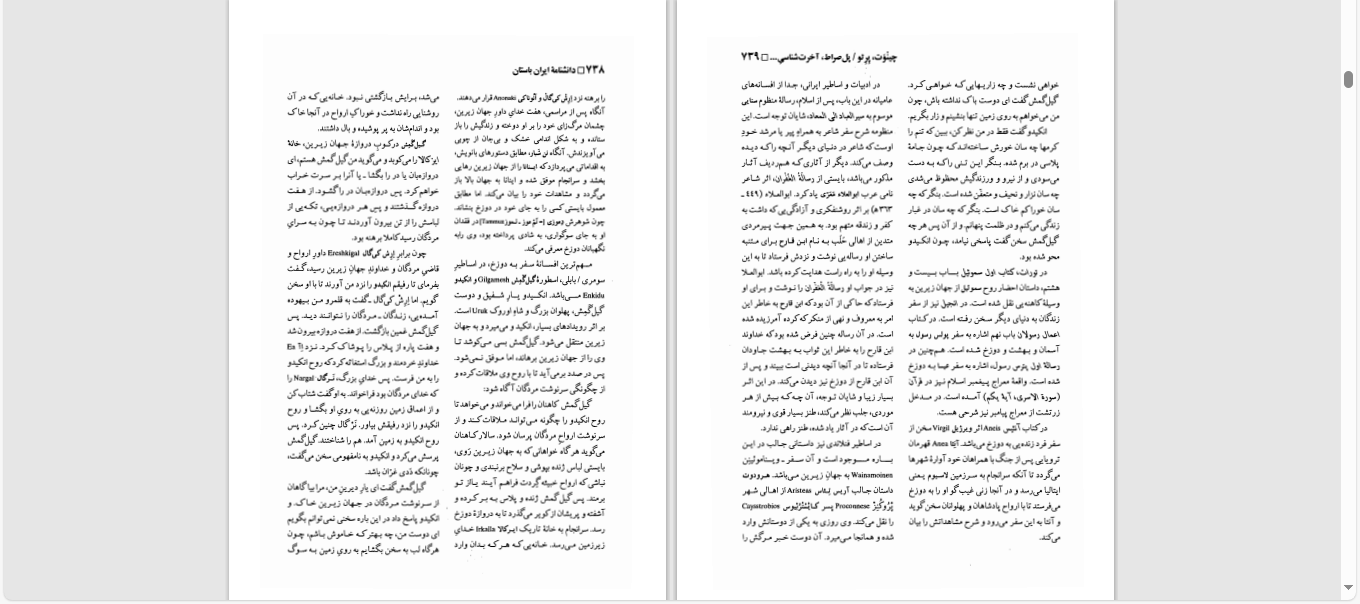 ۷۳۸ □ دانشنامهٔ ایران باستان
را برهنه نزد اِرِش کی‌گال و آنوناکی Anonaki قرار می‌دهند.
آنگاه پس از مراسمی، هفت خدایِ داور جهان زیرین،
چشمان مرگ‌زای خود را بر او دوخته و زندگیش را باز
ستانده و به شکل اندامی خشک و بی‌جان از چوبی
می‌آویزندش. آنگاه نن شبار، مطابق دستورهای بانویش،
به اقداماتی می‌پردازد که اینانا را از جهان زیرین رهایی
بخشد و سرانجام موفق شده و اینانا به جهان بالا باز
می‌گردد و مشاهدات خود را بیان می‌کند. اما مطابق
معمول بایستی کسی را به جای خود در دوزخ بنشاند.
چون شوهرش دموزی (= تموز ـ تموز Tammuz) در فقدان
او به جای سوگواری، به شادی پرداخته بود، وی رابه
نگهبانان دوزخ معرفی می‌کند.
مـهم‌ترین افسـانهٔ سـفر بـه دوزخ، در اسـاطیر
سومری / بابلی، اسطورهٔ گیل‌گَمِش Gilgamesh و انکیدو
Enkidu مــی‌باشد. انکــیدو یــار شــفیق و دوست
گیل‌گَمِش، پهلوان بزرگ و شاهِ اوروک Uruk است.
بر اثر رویدادهای بسیار، انکید و می‌میرد و به جهان
زیرین منتقل می‌شود. گیل‌گمش بسی می‌کوشد تـا
وی را از جهان زیرین برهاند، اما موفق نـمی‌شود.
پس در صدد برمی‌آید تا با روح وی ملاقات کرده و
از چگونگی سرنوشت مردگان آگاه شود:
گیل‌گمش کاهنان را فرا می‌خواند و می‌خواهد تا
روح انکیدو را چگونه می‌توانـد مـلاقات کـند و از
سرنوشت ارواح مردگان پرسان شود. سالار کـاهنان
می‌گوید هر گاه خواهانی که به جهان زیـرین رَوی،
بایستی لباس ژنده بپوشی و سلاح برنبندی و چونان
نباشی که ارواح خبیثه گِردت فراهـم آیـند یـااز تـو
برمند. پس گیل گمش ژنده و پلاس بـه بـر کـرده و
آشفته و پریشان از کویر می‌گذرد تا به دروازهٔ دوزخ
رسد. سرانجام به خانهٔ تاریک ایرکالا Irkalla خـدایِ
زیرزمین مـی‌رسد. خـانه‌یی کـه هـر کـه بـدان وارد
می‌شد، بـرایش بـازگشتی نـبود. خـانه‌یی‌کـه در آن
روشنایی راه نداشت و خوراکِ ارواح در آنجا خـاک
بود و اندام‌شان به پر پوشیده و بال داشتند.
گیـل‌گَمِش درِ کـوبِ دروازهٔ جـهان زیـرین، خانهٔ
ایرْکالا را می‌کوبد و می‌گوید من گیل گمش هستم، ای
دروازه‌بان یا در را بگشا ـ یا آنرا بـر سـرت خـراب
خواهم کرد. پس دروازه‌بـان در راگشـود. از هـفت
دروازه گـذشتند و پس هـر دروازه‌یـی، تکـه‌یی از
لباسش را از تن بیرون آوردنـد تـا چـون بـه سـرایِ
مردگان رسید کاملا برهنه بود.
چون برابر اِرِش کی‌گال Ereshkigal داورِ ارواح و
قاضیِ مردگان و خداوند جهانِ زیرین رسید، گـفت
بفرمای تا رفیقم انکیدو را نزد من آورند تا با او سخن
گویم. اما اِرِش کی‌گال ـ گفت به قلمرو مـن بـیهوده
آمـده‌یی، زنـدگان ـ مـردگان را نـتوانـند دیـد. پس
گیل‌گمش غمین بازگشت. از هفت دروازه بیرون شد
و هفت پاره از پـلاس را پـوشاک کـرد. نـزد اِآ Ea
خداوندِ خردمند و بزرگ استغاثه کرد که روح انکیدو
را به من فرست. پس خدایِ بزرگ، نَـرگال Nargal را
که خدای مردگان بود فراخواند. به او گفت شتاب کن
و از اعماق زمین روزنه‌یی به روی او بگشا و روح
انکیدو را نزد رفیقش بیاور. نَرْگال چنین کرد. پس
روح انکیدو به زمین آمد. هم را شناختند. گیل‌گمش
پرسش می‌کرد و انکیدو به نامفهومی سخن می‌گفت،
چونانکه دَدی غرّان باشد.
گیل‌گمش گفت ای یارِ دیرینِ من، مرا بیا گاهان
از سـرنوشت مـردگان در جـهان زیـرین خـاک. و
انکیدو پاسخ داد در این باره سخنی نمی‌توانم بگویم
ای دوست من، چه بهتر کـه خـاموش بـاشم، چـون
هرگاه لب به سخن بگشایم به رویِ زمین بـه سـوگ
چینْوَت، پرِتو / پل‌صراط، آخرت‌شناسی... □ ۷۳۹
خواهی نشست و چه زاریـهایی کـه خـواهـی کـرد.
گیل‌گمش گفت ای دوست باک نداشته باش، چون
من می‌خواهم به روی زمین تنها بنشینم و زار بگریم.
انکیدو گفت فقط در من نظر کن، ببین که تنم را
کرمها چه سان خورش ساخته‌انـد کـه چـون جـامهٔ
پلاسی در برم شده. بـنگر ایـن تـنی راکـه بـه دست
می‌سودی و از نیرو و ورزندگیش محظوظ می‌شدی
چه سان نزار و نحیف و متعفّن شده است. بنگر که چه
سان خوراکم خاک است. بنگر که چه سان در غبار
زندگی می‌کنم و در ظلمت پنهانم. و از آن پس هر چه
گیل‌گمش سخن گفت پاسخی نیامد، چون انکیـدو
محو شده بود.
در تورات، کتاب اول سموئیل بـاب بـیست و
هشتم، داستان احضار روح سموئیل از جهان زیرین به
وسیلهٔ کاهنه‌یی نقل شده است. در انجیل نیز از سفر
زندگان به دنیای دیگر سـخن رفـته است. در کـتاب
اعمال رسولان باب نهم اشاره به سفر پولس رسول به
آسمان و بـهشت و دوزخ شـده است. هـم‌چنین در
رسالهٔ اوّل پطرس رسول، اشاره به سفر عیسا بـه دوزخ
شده است. واقعهٔ معراج پـیغمبر اسـلام نـیز در قرآن
(سورهٔ الاسری، آیهٔ یکُم) آمـده است. در مـدخل
زرتشت از معراج پیامبر نیز شرحی هست.
در کتاب آنئیس Aneis اثر ویرژیل Virgil سخن از
سفر فرد زنده‌یی به دوزخ می‌باشد. آیتا Anea قهرمان
ترویایی پس از جنگ با همراهان خود آوارهٔ شهرها
می‌گردد تا آنکه سرانجام به سـرزمین لاسیوم یـعنی
ایتالیا می‌رسد و در آنجا زنی غیب‌گو او را به دوزخ
می‌فرستد تا با ارواح پادشاهان و پهلوانان سخن گوید
و آنتا به این سفر می‌رود و شرح مشاهداتش را بیان
می‌کند.
در ادبیات و اساطیر ایرانی، جـدا از افسـانه‌های
عامیانه در این باب، پس از اسلام، رسالهٔ منظوم سنایی
موسوم به سیرالعباد الی المعاد، شایان توجه است. این
منظومه شرح سفرِ شاعر به همراهِ پیر یا مرشد خـود
اوست که شاعر در دنیای دیگر آنـچه راکـه دیـده
وصف می‌کند. دیگر از آثاری کـه هـم‌ردیف آثـار
مذکور می‌باشد، بایستی از رسالَةُ الْغُفْران، اثر شـاعر
نامی عرب ابوالعلاء مَعَرّی یاد کرد. ابوالعـلاء (۴۴۹ ـ
۳۶۳ ه‍) بر اثر روشنفکری و آزادگی‌یی که داشت به
کفر و زندقه متهم بود. به همین جـهت پـیرمردی
متدین از اهالی حَلَب بـه نـام ابن قارح بـرای مـتنبه
ساختن او رساله‌یی نوشت و نزدش فرستاد تا به این
وسیله او را به راه راست هدایت کرده باشد. ابوالعلا
نیز در جواب او رسالَةُ الْغُفْران را نـوشت و بـرای او
فرستاد که حاکی از آن بود که ابن قارح به خاطر این
امر به معروف و نهی از منکر که کرده آمرزیده شده
است. در آن رساله چنین فرض شده بود که خداوند
ابن قارح را به خاطر این ثواب بـه بـهشت جـاودان
فرستاده تا در آنجا آنچه دیدنی است ببیند و پس از
آن ابن قارح از دوزخ نیز دیدن می‌کند. در این اثـر
بسیار زیبا و شایان تـوجه، آن چـه کـه بـیش از هـر
موردی، جلب نظر می‌کند، طنز بسیار قوی و نیرومند
آن است که در آثار یاد شده، طنز راهی ندارد.
در اساطیر فنلاندی نیز داستانی جـالب در ایـن
بــاره مــوجود است و آن سـفر ـ ویـناموئینن
Wainamoinen به جهان زیـرین مـی‌باشد. هـرودوت
داستان جـالبِ آریس تِـئاس Aristeas از اهـالی شـهر
پْرُوکُنِّزْ Proconnese پسر کـایْسْتْرْبیوس Cayastrobios
را نقل می‌کند. وی روزی به یکی از دوستانش وارد
شده و همانجا می‌میرد. آن دوست خـبر مـرگش را